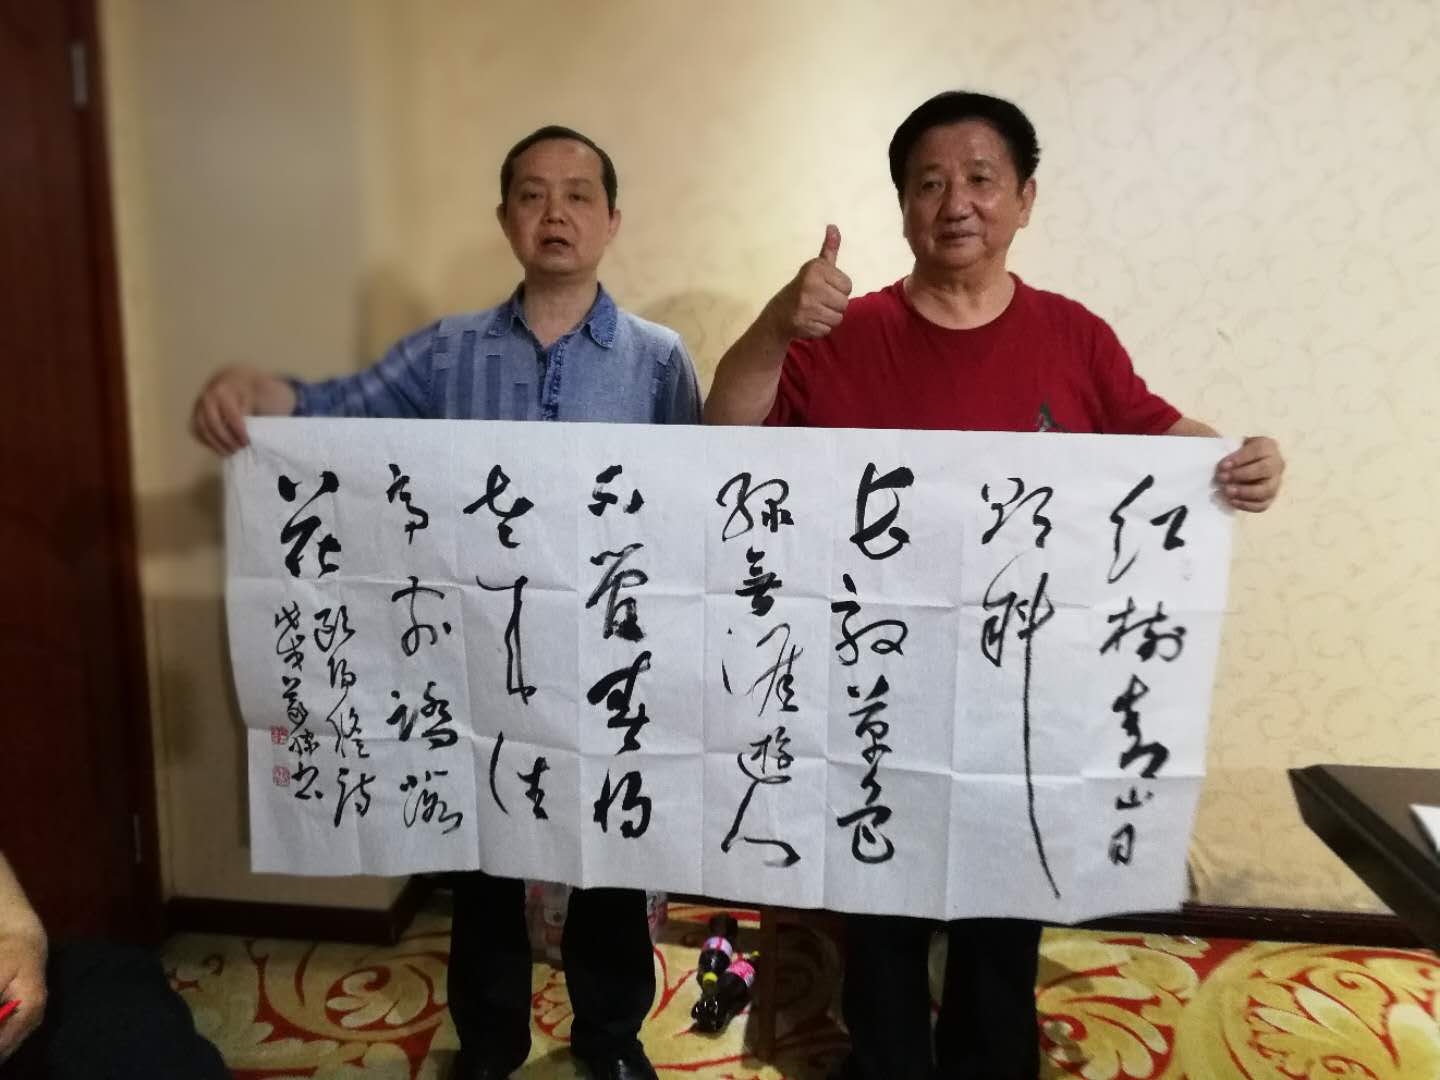 红樹青山日
欲斜
长郊草色
綠無涯遊人
不管春将
老来往
亭前踏落
花 欧阳修诗
戊戌 书